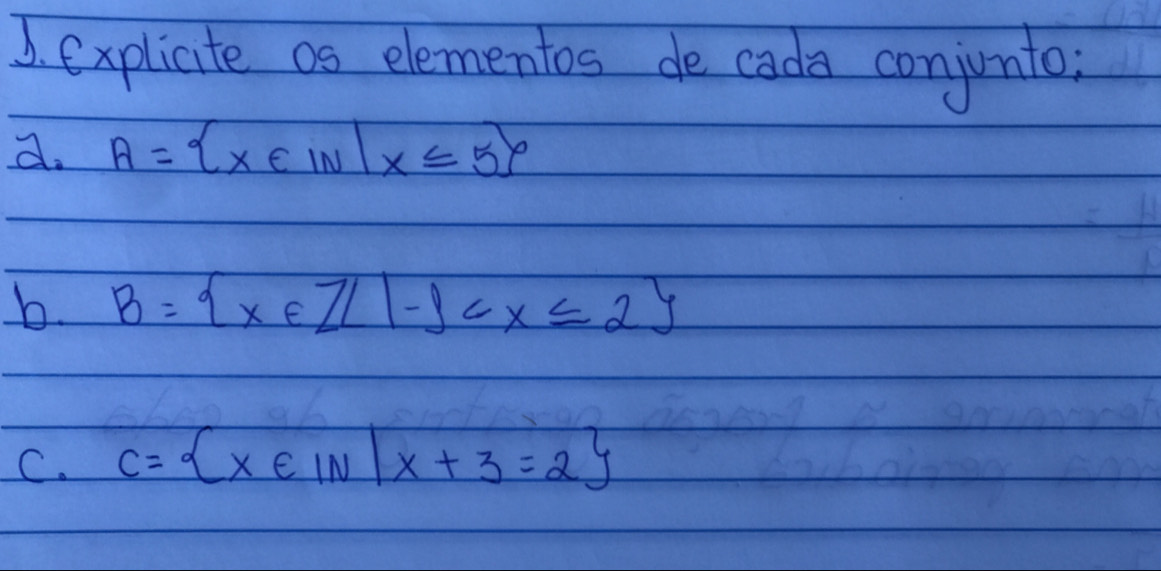 1. Explicite os elementos de cada conjunto:
a. A = {x ∈ IN | x ≤ 5}
b. B = {x ∈ Z | -1 < x ≤ 2}
c. C = {x ∈ IN | x + 3 = 2}